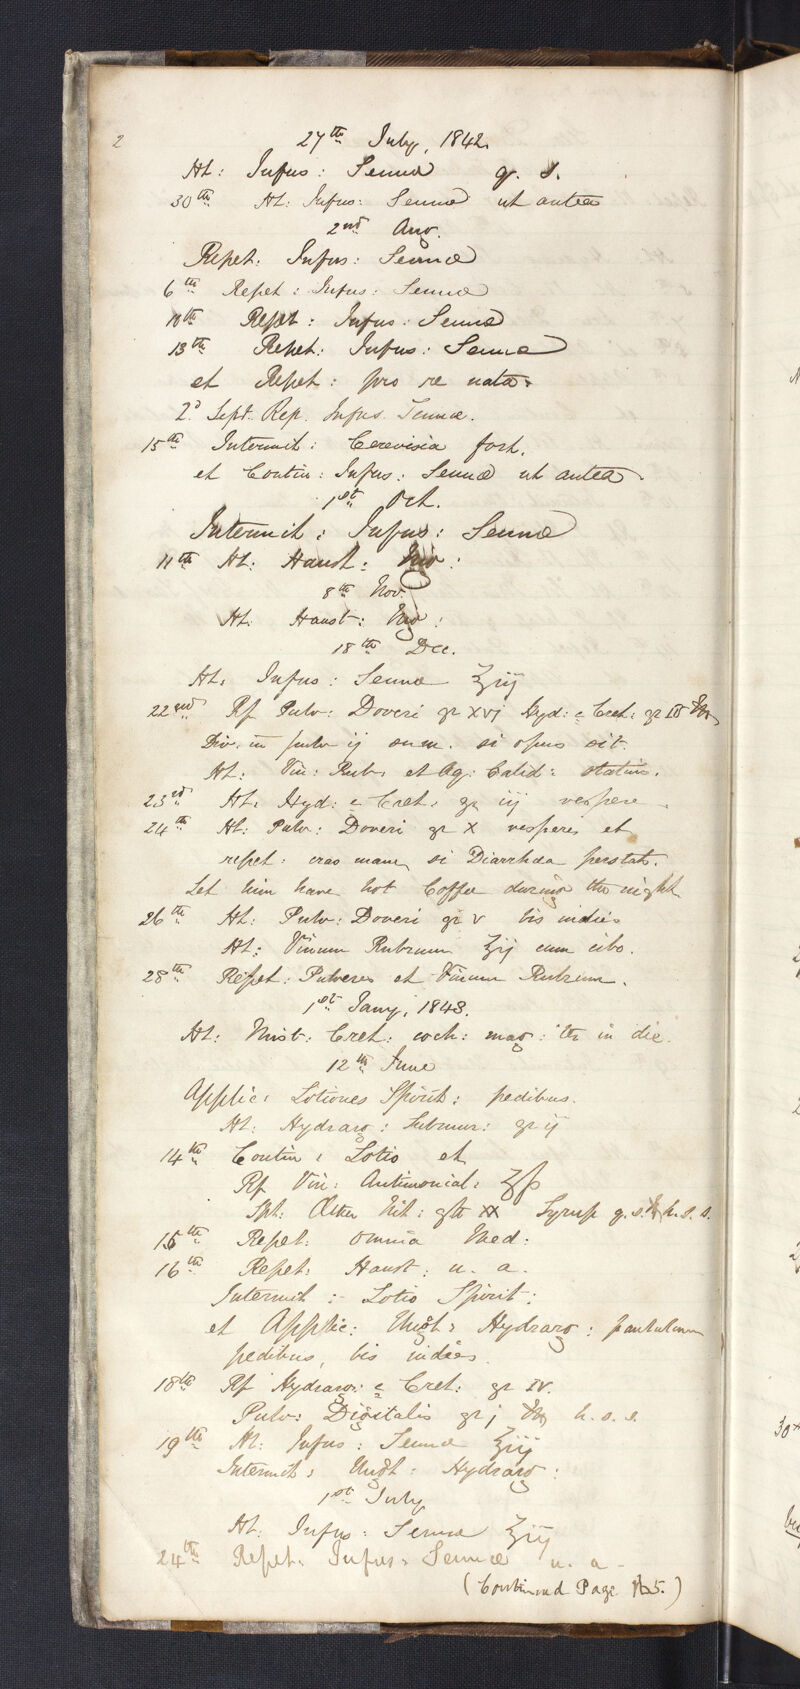 2
27th July, 1842.
Ht: Infus: Sennæ q. s.
30th Ht: Infus: Sennæ ut antea
2nd Aug.
Repet: Infus: Sennæ
6th Repet: Infus: Sennæ
10th Repet: Infus: Sennæ
13th Repet: Infus: Sennæ
et Repet: pro re nata.
2d Sept. Rep. Infus. Sennæ.
15th Intermit: Cerevisia fort.
et Contin: Infus: Sennæ ut antea.
1st Oct.
Intermit: Infus: Sennæ
11th Ht: Haust:
8th Nov.
Ht: Haust:
18th Dec.
Ht: Infus: Sennæ ʒiij
22nd Rf Pulv: Doveri gr xvj Hyd: c Cret: gr
Div: in pulv ij sum. si opus sit.
Ht: Vin: Rub: et Aq: Calid: statim.
23rd Ht: Hyd: c Cret: gr iij vespere.
24th Ht: Pulv: Doveri gr X vespere et
repet: cras mane, si Diarrhœa perstat.
Let him have hot Coffee during the night
26th Ht: Pulv: Doveri gr v bis indies
Ht: Vinum Rubrum ʒij cum cibo.
28th Repet: Pulveres et Vinum Rubrum.
1st Jany, 1843.
Ht: Mist: Cret: coch: mag: ter in die.
12th June
Applic: Lotiones Spirit: pedibus.
Ht: Hydrarg: Submur: gr ij
14th Contin: Lotio et
Rf Vin: Antimonial: ʒß
Spt: Æther Nit: gtt XX Syrup q.s. h.s.s.
15th Repet: omnia Med:
16th Repet: Haust: u. a.
Intermit: Lotio Spirit:
et Applic: Ungt: Hydrarg: paululum
pedibus, bis indies.
18th Rf Hydrarg: c Cret: gr IV.
Pulv: Digitalis gr j h.s.s.
19th Ht: Infus: Sennæ ʒiij
Intermit: Ungt: Hydrarg:
1st July
Ht: Infus: Sennæ ʒiij
24th Repet: Infus: Sennæ u. a
(Continued Page 5.)